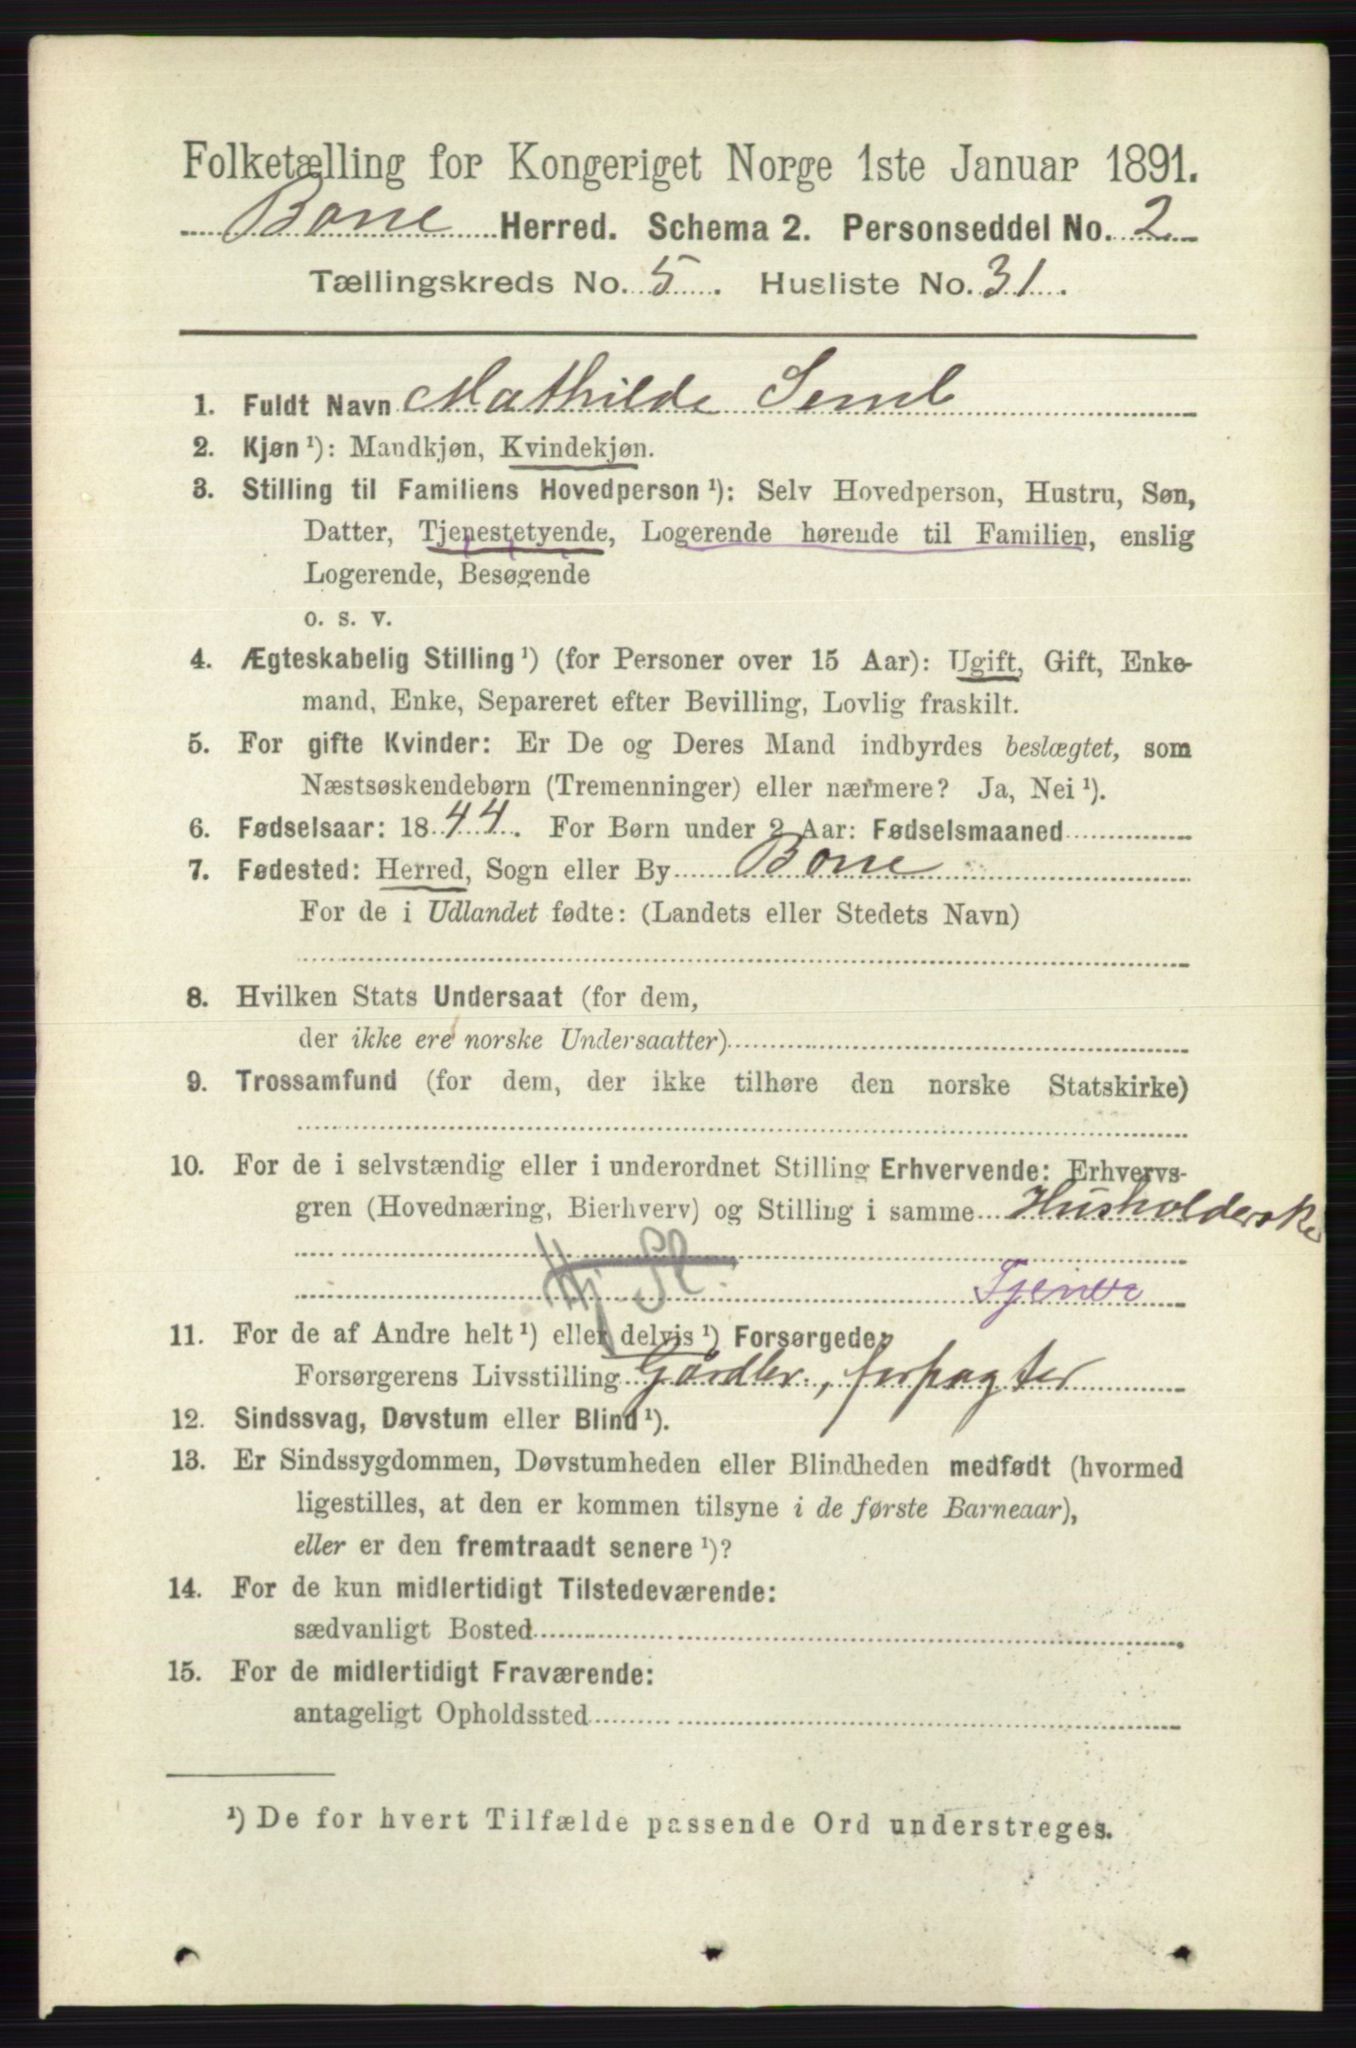 Folketælling for Kongeriget Norge 1ste Januar 1891.
Borre Herred. Schema 2. Personseddel No. 2
Tællingskreds No. 5. Husliste No. 31.
1. Fuldt Navn Mathilde Semb
2. Kjøn ¹): Mandkjøn, Kvindekjøn.
3. Stilling til Familiens Hovedperson ¹): Selv Hovedperson, Hustru, Søn,
Datter, Tjenestetyende, Logerende hørende til Familien, enslig
Logerende, Besøgende
o. s. v.
4. Ægteskabelig Stilling ¹) (for Personer over 15 Aar): Ugift, Gift, Enke-
mand, Enke, Separeret efter Bevilling, Lovlig fraskilt.
5. For gifte Kvinder: Er De og Deres Mand indbyrdes beslægtet, som
Næstsøskendebørn (Tremenninger) eller nærmere? Ja, Nei ¹).
6. Fødselsaar: 1844. For Børn under 2 Aar: Fødselsmaaned
7. Fødested: Herred, Sogn eller By Borre
For de i Udlandet fødte: (Landets eller Stedets Navn)
8. Hvilken Stats Undersaat (for dem,
der ikke ere norske Undersaatter)
9. Trossamfund (for dem, der ikke tilhøre den norske Statskirke)
10. For de i selvstændig eller i underordnet Stilling Erhvervende: Erhvervs-
gren (Hovednæring, Bierhverv) og Stilling i samme Husholderske
Hj Sl.
Tjener
11. For de af Andre helt ¹) eller delvis ¹) Forsørgede:
Forsørgerens Livsstilling Gårdbr., forpagter
12. Sindssvag, Døvstum eller Blind ¹).
13. Er Sindssygdommen, Døvstumheden eller Blindheden medfødt (hvormed
ligestilles, at den er kommen tilsyne i de første Barneaar),
eller er den fremtraadt senere ¹)?
14. For de kun midlertidigt Tilstedeværende:
sædvanligt Bosted
15. For de midlertidigt Fraværende:
antageligt Opholdssted
¹) De for hvert Tilfælde passende Ord understreges.